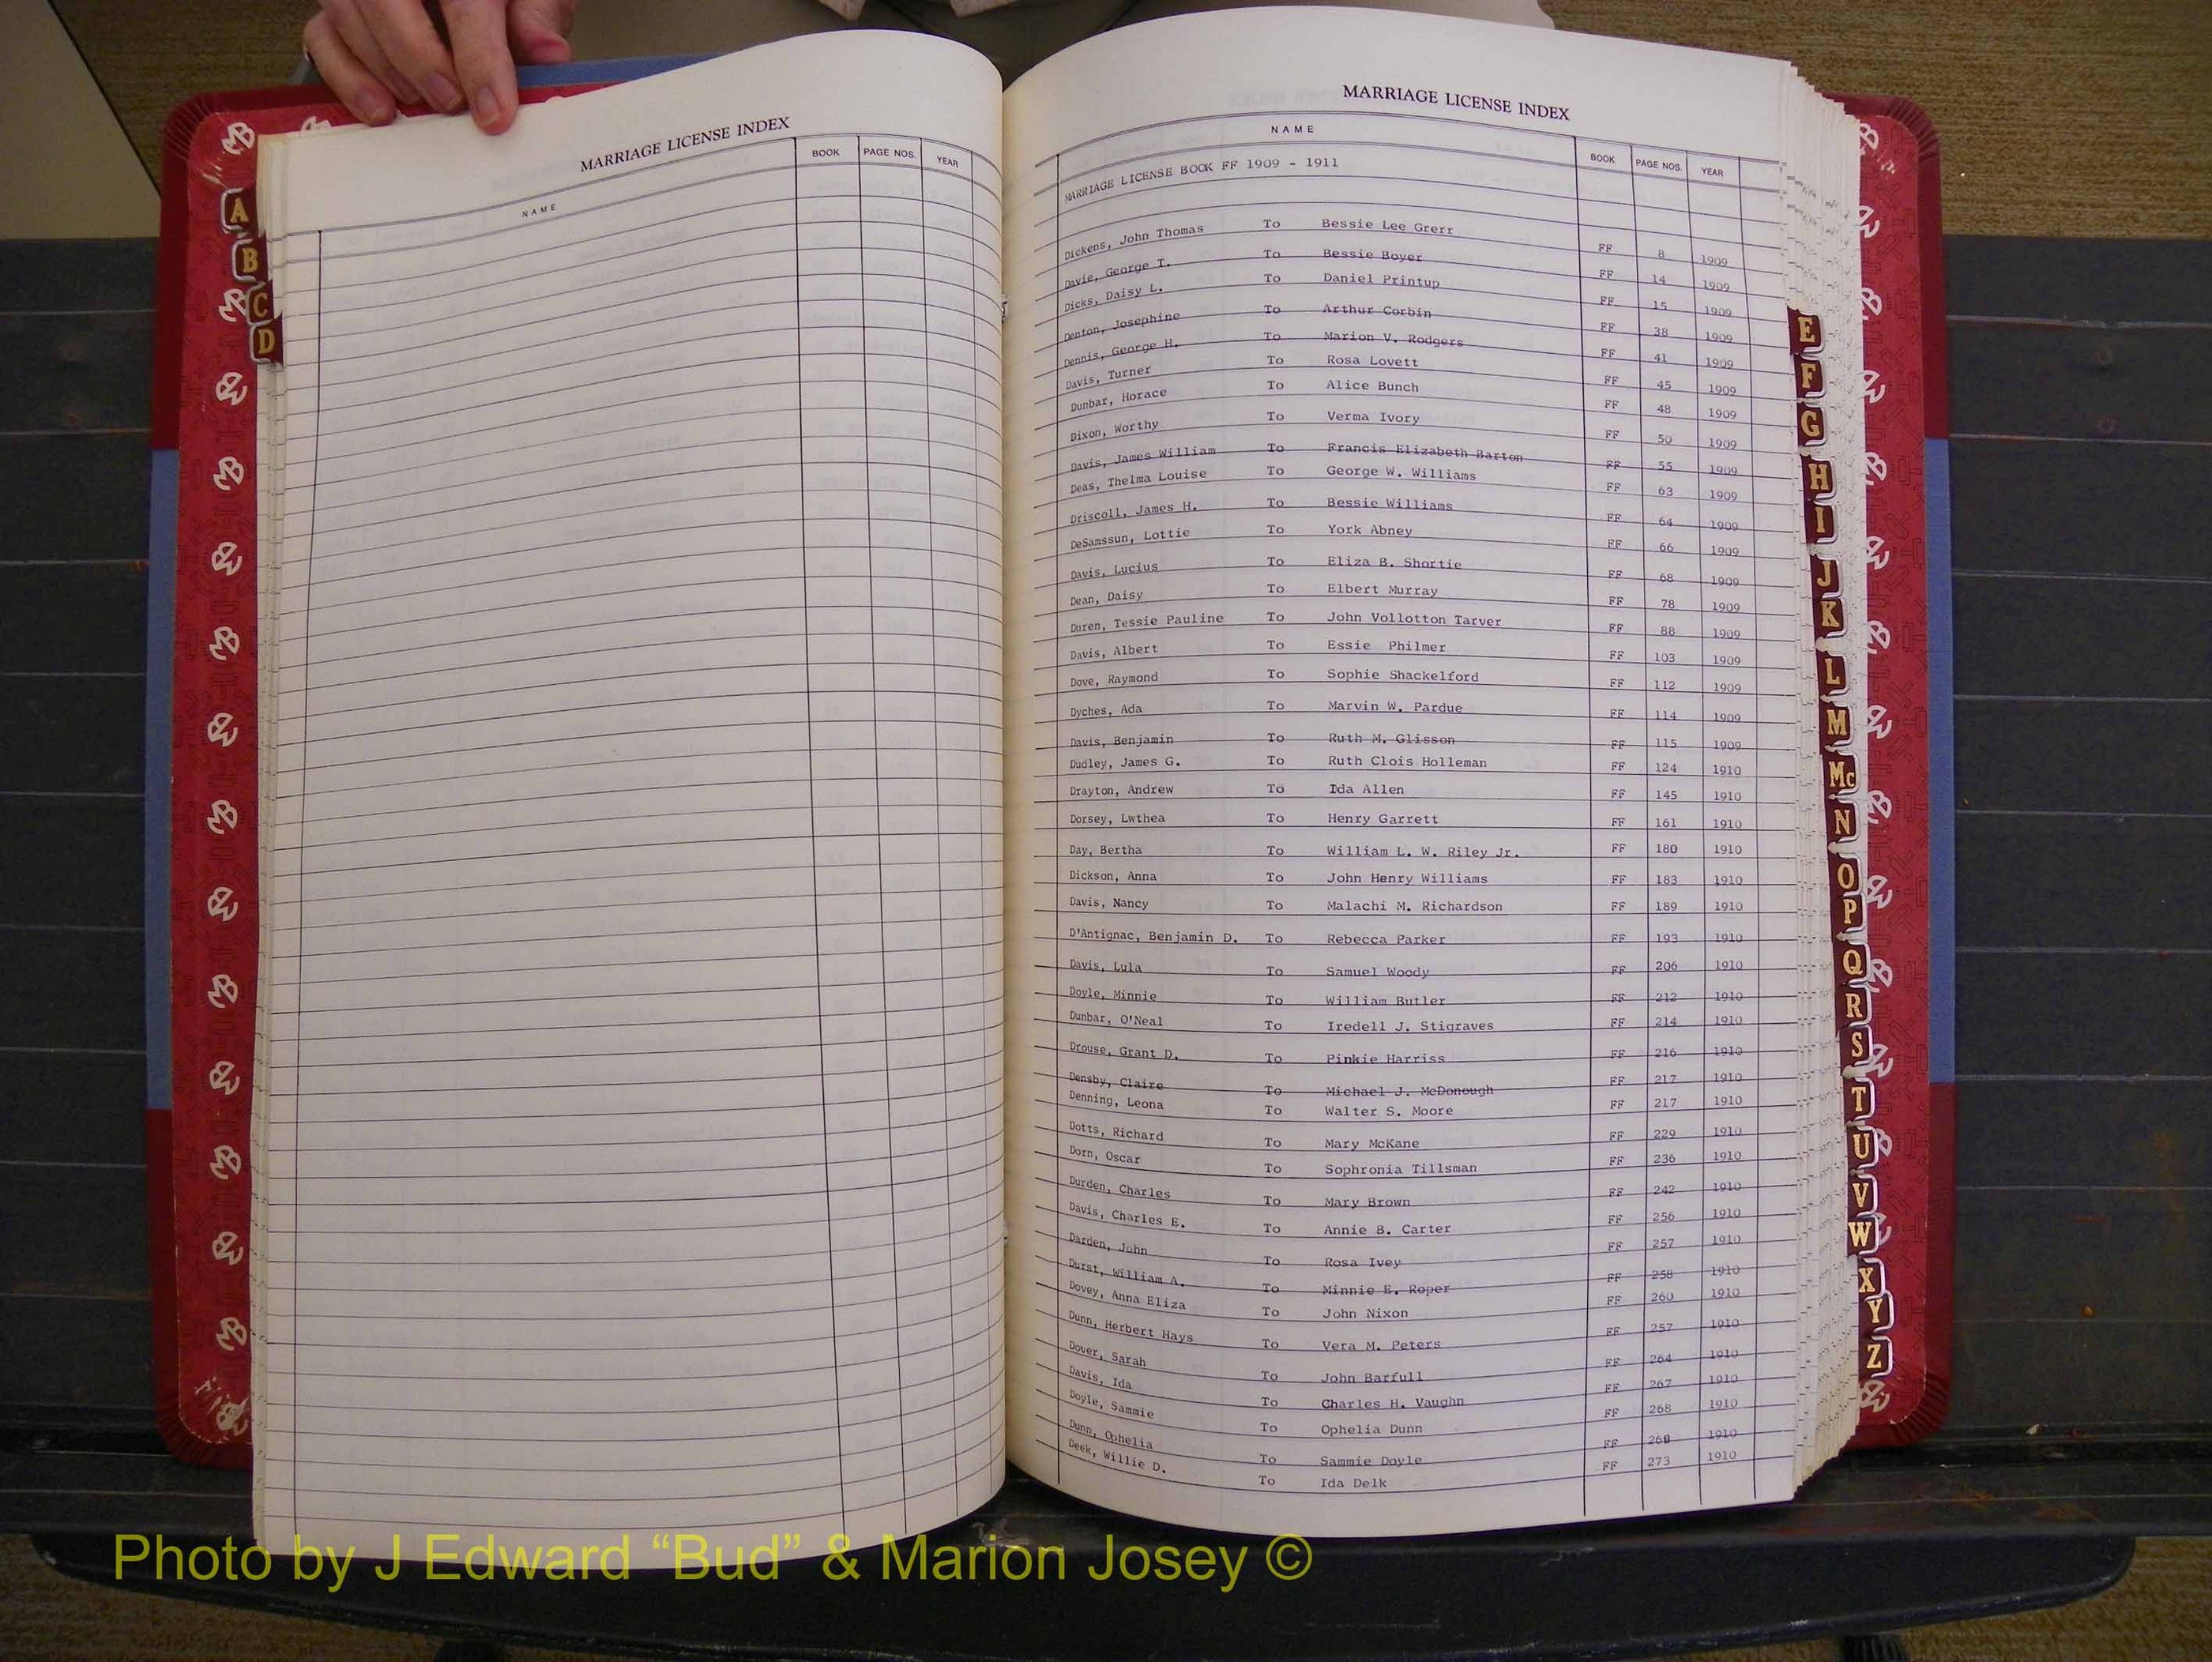 MARRIAGE LICENSE INDEX
NAME BOOK PAGE NOS. YEAR
MARRIAGE LICENSE INDEX
NAME BOOK PAGE NOS. YEAR
MARRIAGE LICENSE BOOK FF 1909 - 1911
Dickens, John Thomas To Bessie Lee Grerr FF 8 1909
Davie, George T. To Bessie Boyer FF 14 1909
Dicks, Daisy L. To Daniel Printup FF 15 1909
Denton, Josephine To Arthur Corbin FF 38 1909
Dennis, George H. To Marion V. Rodgers FF 41 1909
Davis, Turner To Rosa Lovett FF 45 1909
Dunbar, Horace To Alice Bunch FF 48 1909
Dixon, Worthy To Verma Ivory FF 50 1909
Davis, James William To Francis Elizabeth Barton FF 55 1909
Deas, Thelma Louise To George W. Williams FF 63 1909
Driscoll, James H. To Bessie Williams FF 64 1909
DeSamssun, Lottie To York Abney FF 66 1909
Davis, Lucius To Eliza B. Shortie FF 68 1909
Dean, Daisy To Elbert Murray FF 78 1909
Duren, Tessie Pauline To John Vollotton Tarver FF 88 1909
Davis, Albert To Essie Philmer FF 103 1909
Dove, Raymond To Sophie Shackelford FF 112 1909
Dyches, Ada To Marvin W. Pardue FF 114 1909
Davis, Benjamin To Ruth M. Glisson FF 115 1909
Dudley, James G. To Ruth Clois Holleman FF 124 1910
Drayton, Andrew To Ida Allen FF 145 1910
Dorsey, Lwthea To Henry Garrett FF 161 1910
Day, Bertha To William L. W. Riley Jr. FF 180 1910
Dickson, Anna To John Henry Williams FF 183 1910
Davis, Nancy To Malachi M. Richardson FF 189 1910
D'Antignac, Benjamin D. To Rebecca Parker FF 193 1910
Davis, Lula To Samuel Woody FF 206 1910
Doyle, Minnie To William Butler FF 212 1910
Dunbar, O'Neal To Iredell J. Stigraves FF 214 1910
Drouse, Grant D. To Pinkie Harriss FF 216 1910
Densby, Claire To Michael J. McDonough FF 217 1910
Denning, Leona To Walter S. Moore FF 217 1910
Dotts, Richard To Mary McKane FF 229 1910
Dorn, Oscar To Sophronia Tillsman FF 236 1910
Durden, Charles To Mary Brown FF 242 1910
Davis, Charles E. To Annie B. Carter FF 256 1910
Darden, John To Rosa Ivey FF 257 1910
Durst, William A. To Minnie E. Roper FF 258 1910
Dovey, Anna Eliza To John Nixon FF 260 1910
Dunn, Herbert Hays To Vera M. Peters FF 257 1910
Dover, Sarah To John Barfull FF 264 1910
Davis, Ida To Charles H. Vaughn FF 267 1910
Doyle, Sammie To Ophelia Dunn FF 268 1910
Dunn, Ophelia To Sammie Doyle FF 268 1910
Deek, Willie D. To Ida Delk FF 273 1910
A
B
C
D
E
F
G
H
I
J
K
L
M
Mc
N
O
P
Q
R
S
T
U
V
W
X
Y
Z
Photo by J Edward “Bud” & Marion Josey ©